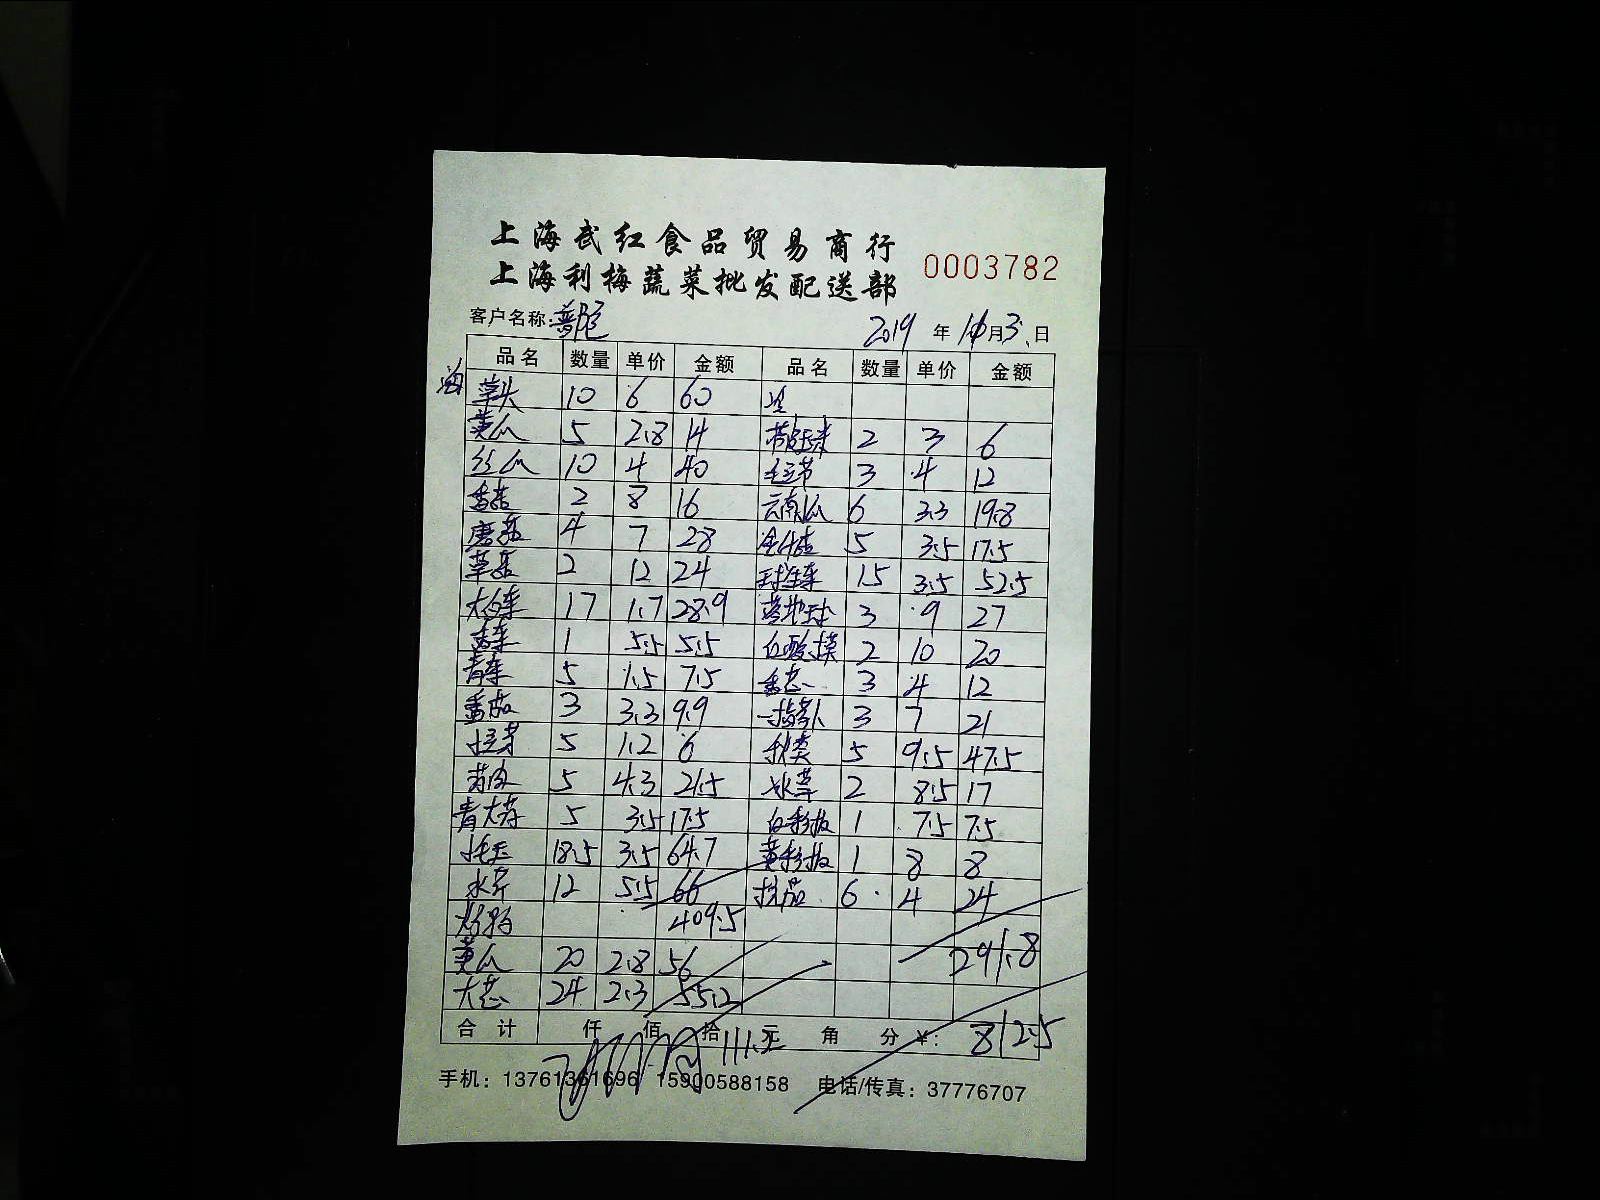 上海武红食品贸易商行
上海利梅蔬菜批发配送部
0003782
客户名称:普陀 2019年10月3日
品名 数量 单价 金额 品名 数量 单价 金额
草头 10 6 60
黄瓜 5 2.8 14 带皮玉米 2 3 6
丝瓜 10 4 40 毛豆节 3 4 12
香菇 2 8 16 云南瓜 6 3.3 19.8
磨菇 4 7 28 5 3.5 17.5
草菇 2 12 24 球生菜 15 3.5 52.5
大白菜 17 1.7 28.9 3 9 27
香菜 1 5.5 5.5 2 10 20
青菜 5 1.5 7.5 香芯 3 4 12
番茄 3 3.3 9.9 3 7 21
土豆 5 1.2 6 秋葵 5 9.5 47.5
5 4.3 21.5 2 8.5 17
青大 5 3.5 17.5 白彩板 1 7.5 7.5
18.5 3.5 64.7 黄彩板 1 8 8
水芹 12 5.5 66 茄 6 4 24
409.5
黄瓜 20 2.8 56 291.8
大葱 24 2.3 55.2
合计 仟 佰 拾 元 角 分 ¥: 812.5
111.2
手机：13761361696 15900588158 电话/传真：37776707